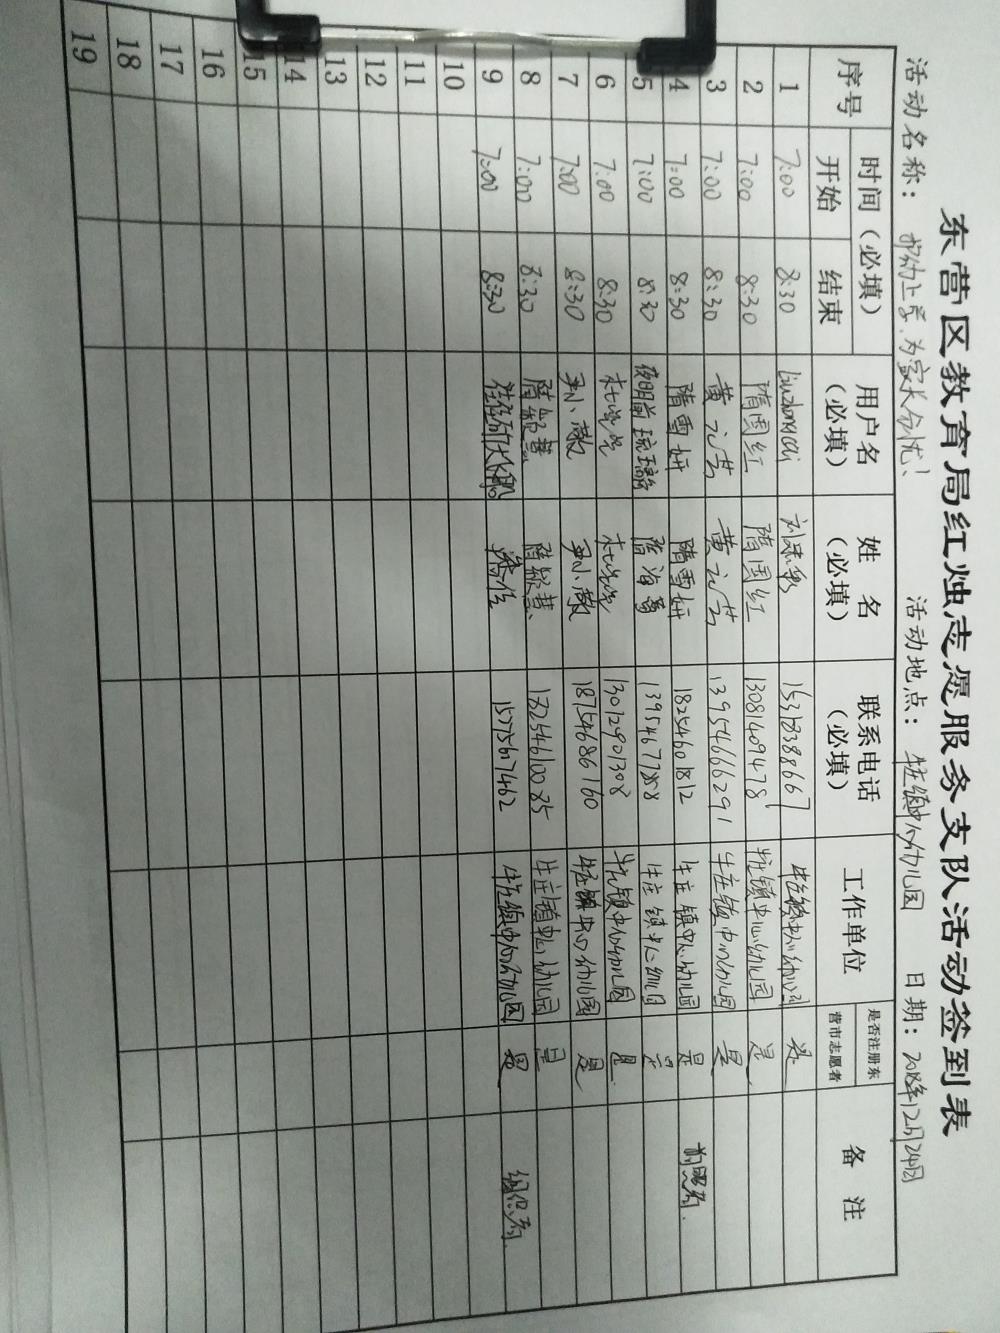 东营区教育局红烛志愿服务支队活动签到表
活动名称：护幼上学，为家长分忧！ 活动地点：牛庄镇中心幼儿园 日期：2018年12月24日
序号 时间（必填） 用户名（必填） 姓名（必填） 联系电话（必填） 工作单位 是否注册东营市志愿者 备注
开始 结束
1 7:00 8:30 刘 牛庄镇中心幼儿园 是
2 7:00 8:30 隋国红 隋国红 13081409478 牛庄镇中心幼儿园 是
3 7:00 8:30 黄元芸 黄元芸 13954666291 牛庄镇中心幼儿园 是
4 7:00 8:30 隋雪妍 隋雪妍 18254601812 牛庄镇中心幼儿园 是
5 7:00 8:30 牛庄镇中心幼儿园 是
6 7:00 8:30 13012901308 牛庄镇中心幼儿园 是
7 7:00 8:30 18754686160 牛庄镇中心幼儿园 是
8 7:00 8:30 18254610085 牛庄镇中心幼儿园 是
9 7:00 8:30 15775607462 牛庄镇中心幼儿园 是
10
11
12
13
14
15
16
17
18
19